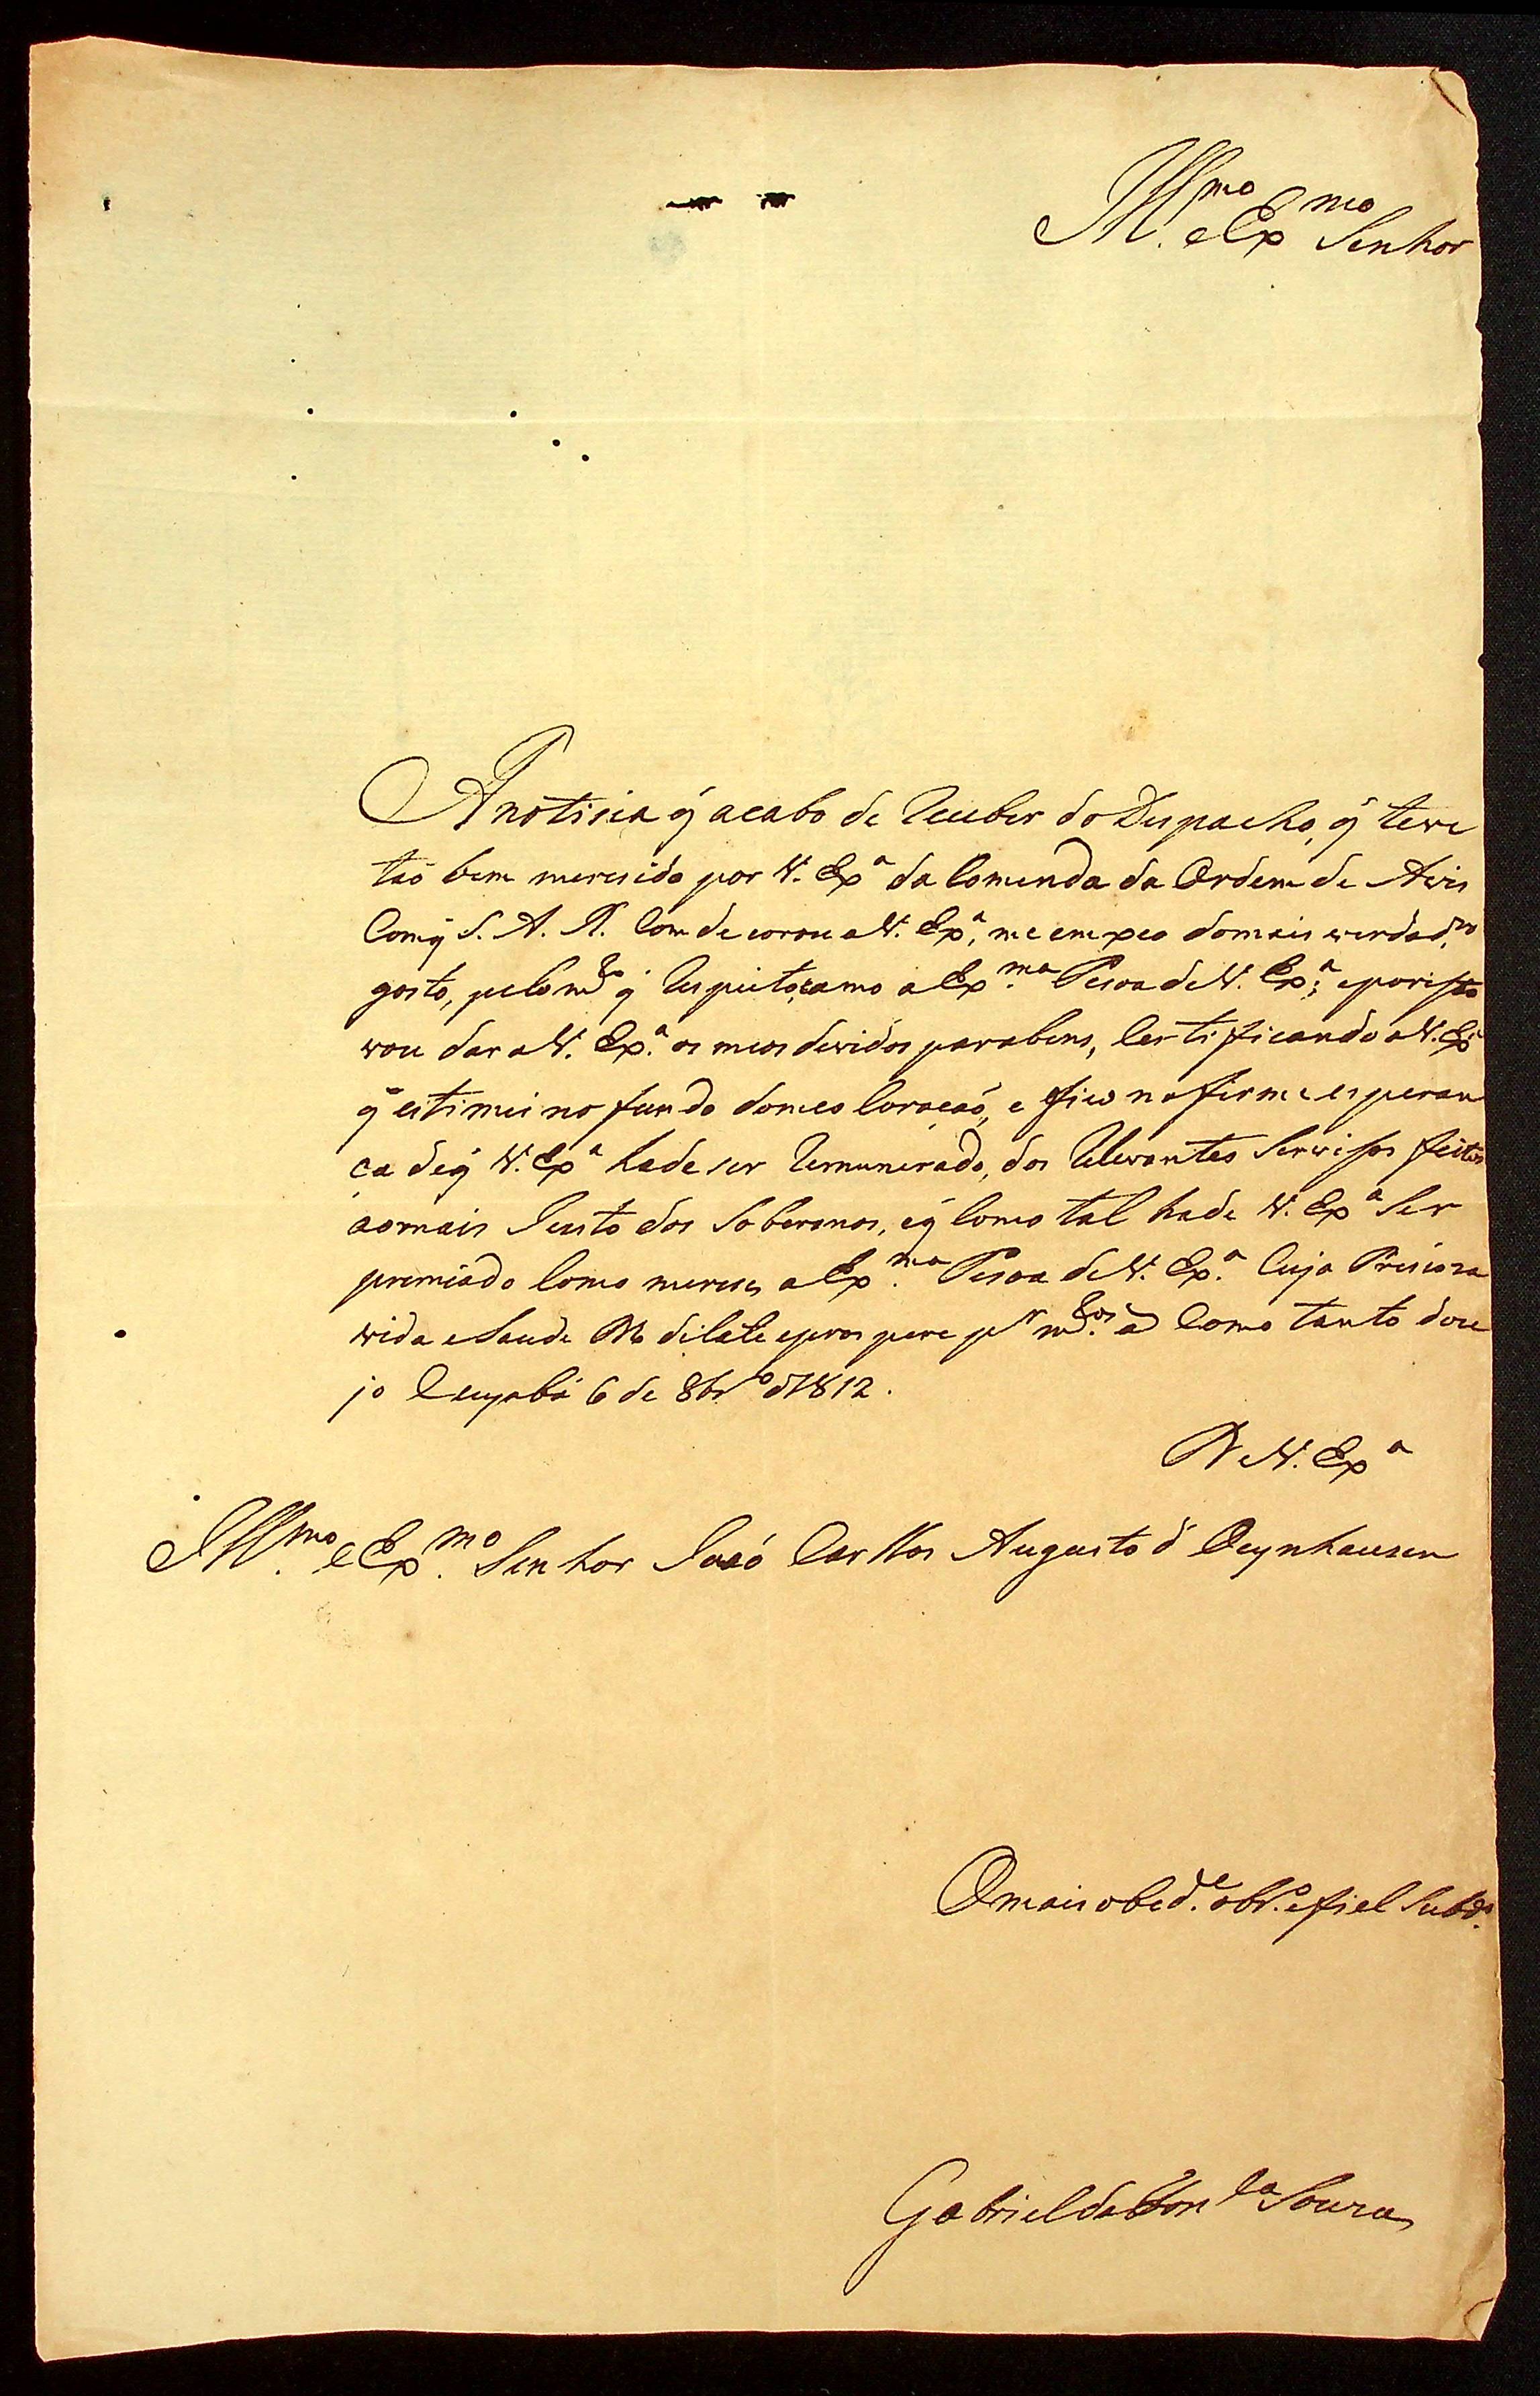 Ill.mo e Ex.mo Senhor
A notisia q̃ acabo de Receber do Despacho, q̃ teve
taõ bem meresido por V. Ex.a da Comenda da Ordem de Avis
Com q̃ S. A. R. Condecorou a V. Ex.a, me enxeo do mais verdad.ro
gosto, pelo m.to q̃ Respeito, e amo a Ex.ma Pesoa de V. Ex.a; e por isso
vou dar a V. Ex.a os meos devidos parabens, Certificando a V. Ex.a
q̃ estimei no fundo do meo Coraçaõ, e fico na firme esperan
ça de q̃ V. Ex.a hade ser Remunerado, dos Relevantes Servisos feitos
ao mais Justo dos Soberanos, e q̃ Como tal hade V. Ex.a Ser
premiado Como merese, a Ex.ma Pesoa de V. Ex.a Cuja Presioza
vida e Saude Ds dilate e prospere p.r m.tos a.s Como tanto dese
jo Cuyabá 6 de 8br.o d 1812.
De V. Ex.a
Ill.mo e Ex.mo Senhor Joaõ Carllos Augusto d' Oeynhausen
O mais obed.e obr.o e fiel Subd.o
Gabriel da Fon.ca Souza